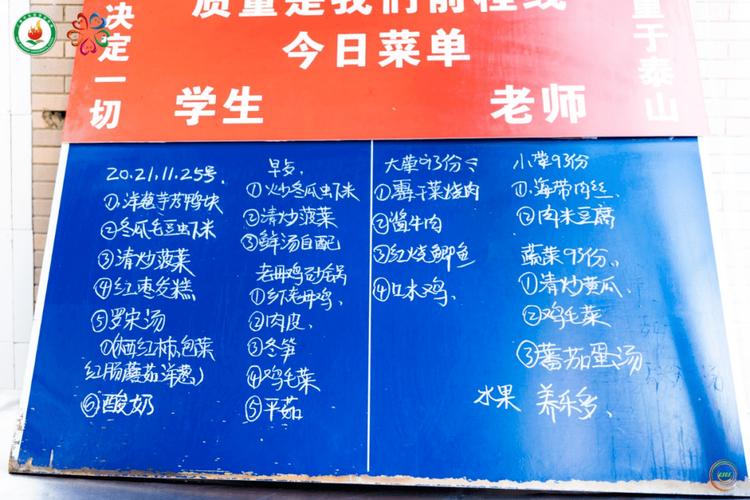 质量是我们前程线
决定一切
重于泰山
今日菜单
学生
老师
2021.11.25号
①洋葱芋艿鸭块
②冬瓜毛豆虾米
③清炒菠菜
④红枣发糕
⑤罗宋汤
(西红柿,包菜
红肠蘑菇洋葱)
⑥酸奶
①火炒冬瓜虫下米
②清炒菠菜
③鲜汤自配
老母鸡砂锅
老母鸡
②肉皮
③冬笋
④鸡毛菜
⑤平菇
大荤93份
①霉干菜烧肉
②酱牛肉
③红烧鲫鱼
④口水鸡
小荤93份
①海带肉丝
②肉末豆腐
蔬菜93份
①清炒黄瓜
②鸡毛菜
③蕃茄蛋汤
水果 养乐多